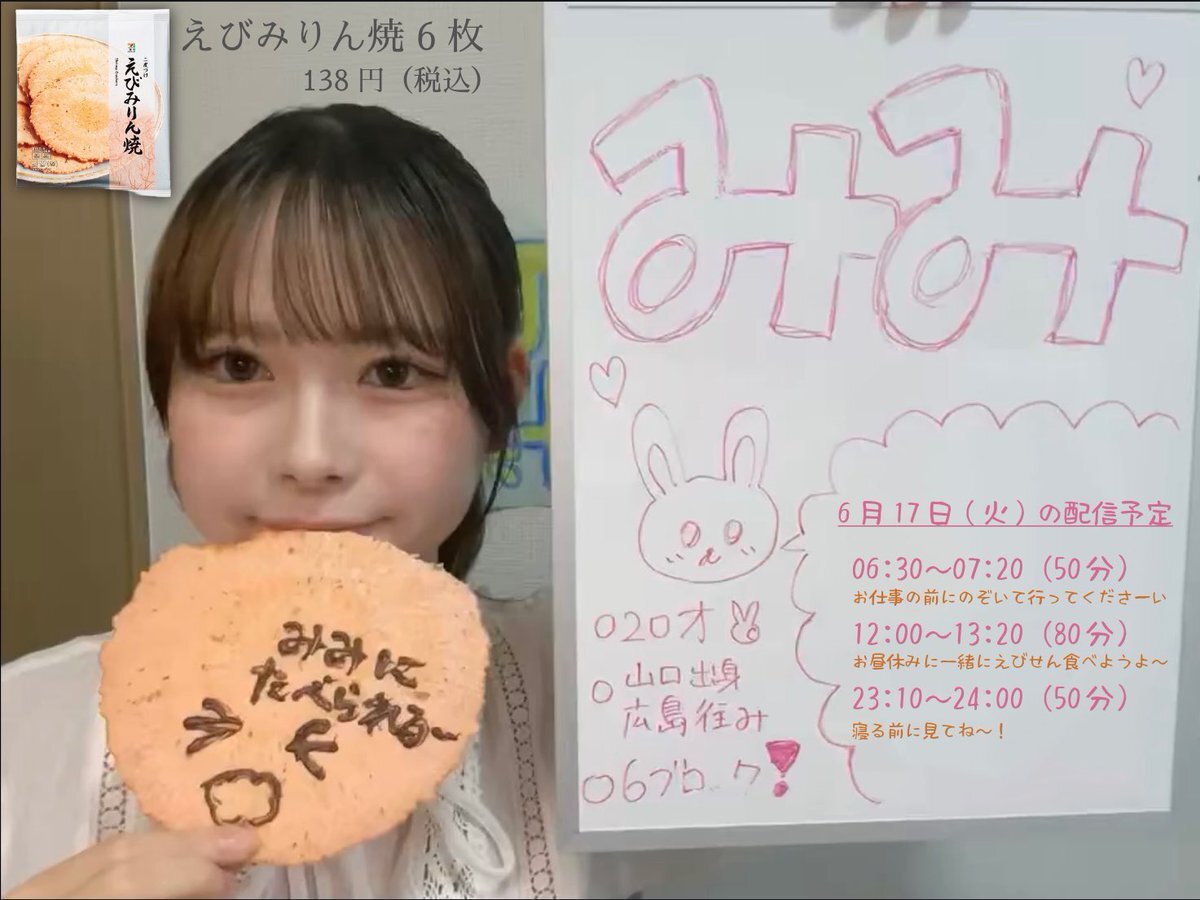 えびみりん焼6枚
138円（税込）
二度づけ
えびみりん焼
みみ
みみに
たべられる〜
6月17日（火）の配信予定
06:30〜07:20（50分）
お仕事の前にのぞいて行ってくださーい
12:00〜13:20（80分）
お昼休みに一緒にえびせん食べようよ〜
23:10〜24:00（50分）
寝る前に見てね〜！
○20才
○山口出身
広島住み
○6ブロック！